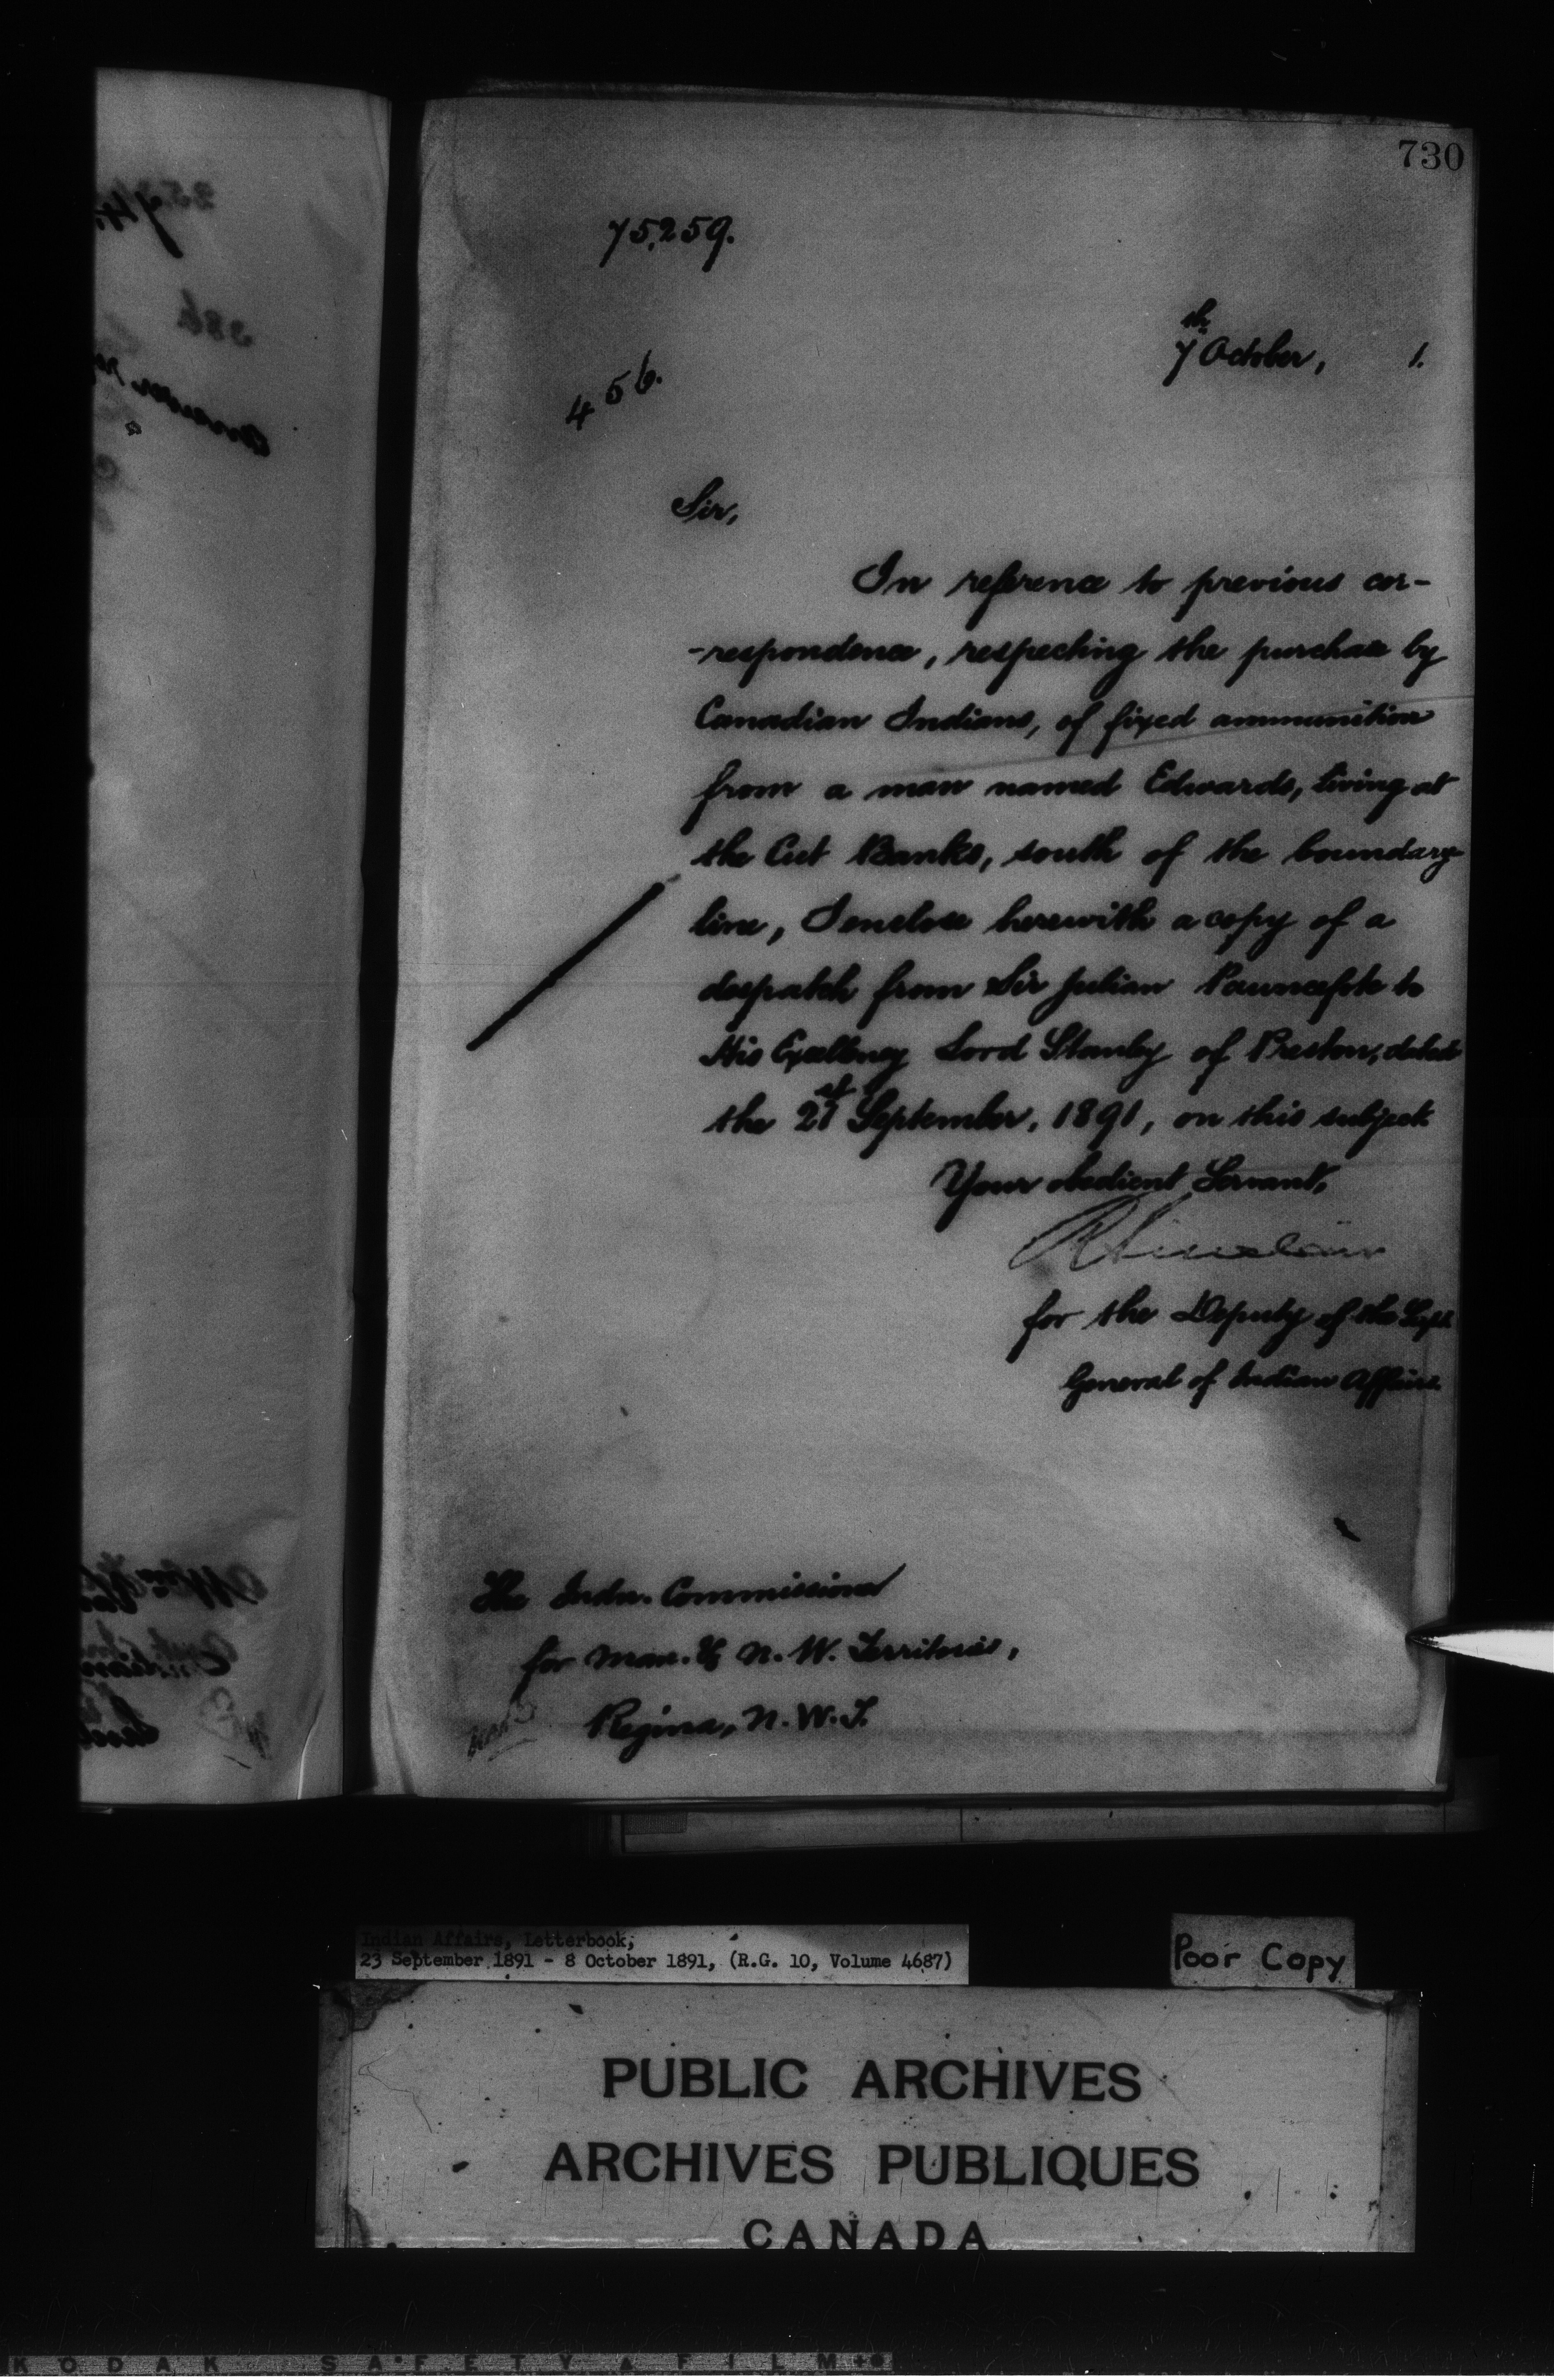 730
75,259.
7th October, 1.
456.
Sir,
In reference to previous cor-
-respondence, respecting the purchase by
Canadian Indians, of fixed ammunition
from a man named Edwards, living at
the Cut Banks, south of the boundary
line, I enclose herewith a copy of a
despatch from Sir Julian Pauncefote to
His Excellency Lord Stanley of Preston, dated
the 21st September, 1891, on this subject
Your obedient Servant,
R Sinclair
for the Deputy of the Supt
General of Indian Affairs
The Indn. Commissioner
for Man. & N. W. Territories,
Regina, N. W. T.
Indian Affairs, Letterbook,
23 September 1891 - 8 October 1891, (R.G. 10, Volume 4687)
Poor Copy
PUBLIC ARCHIVES
ARCHIVES PUBLIQUES
CANADA
KODAK SAFETY FILM